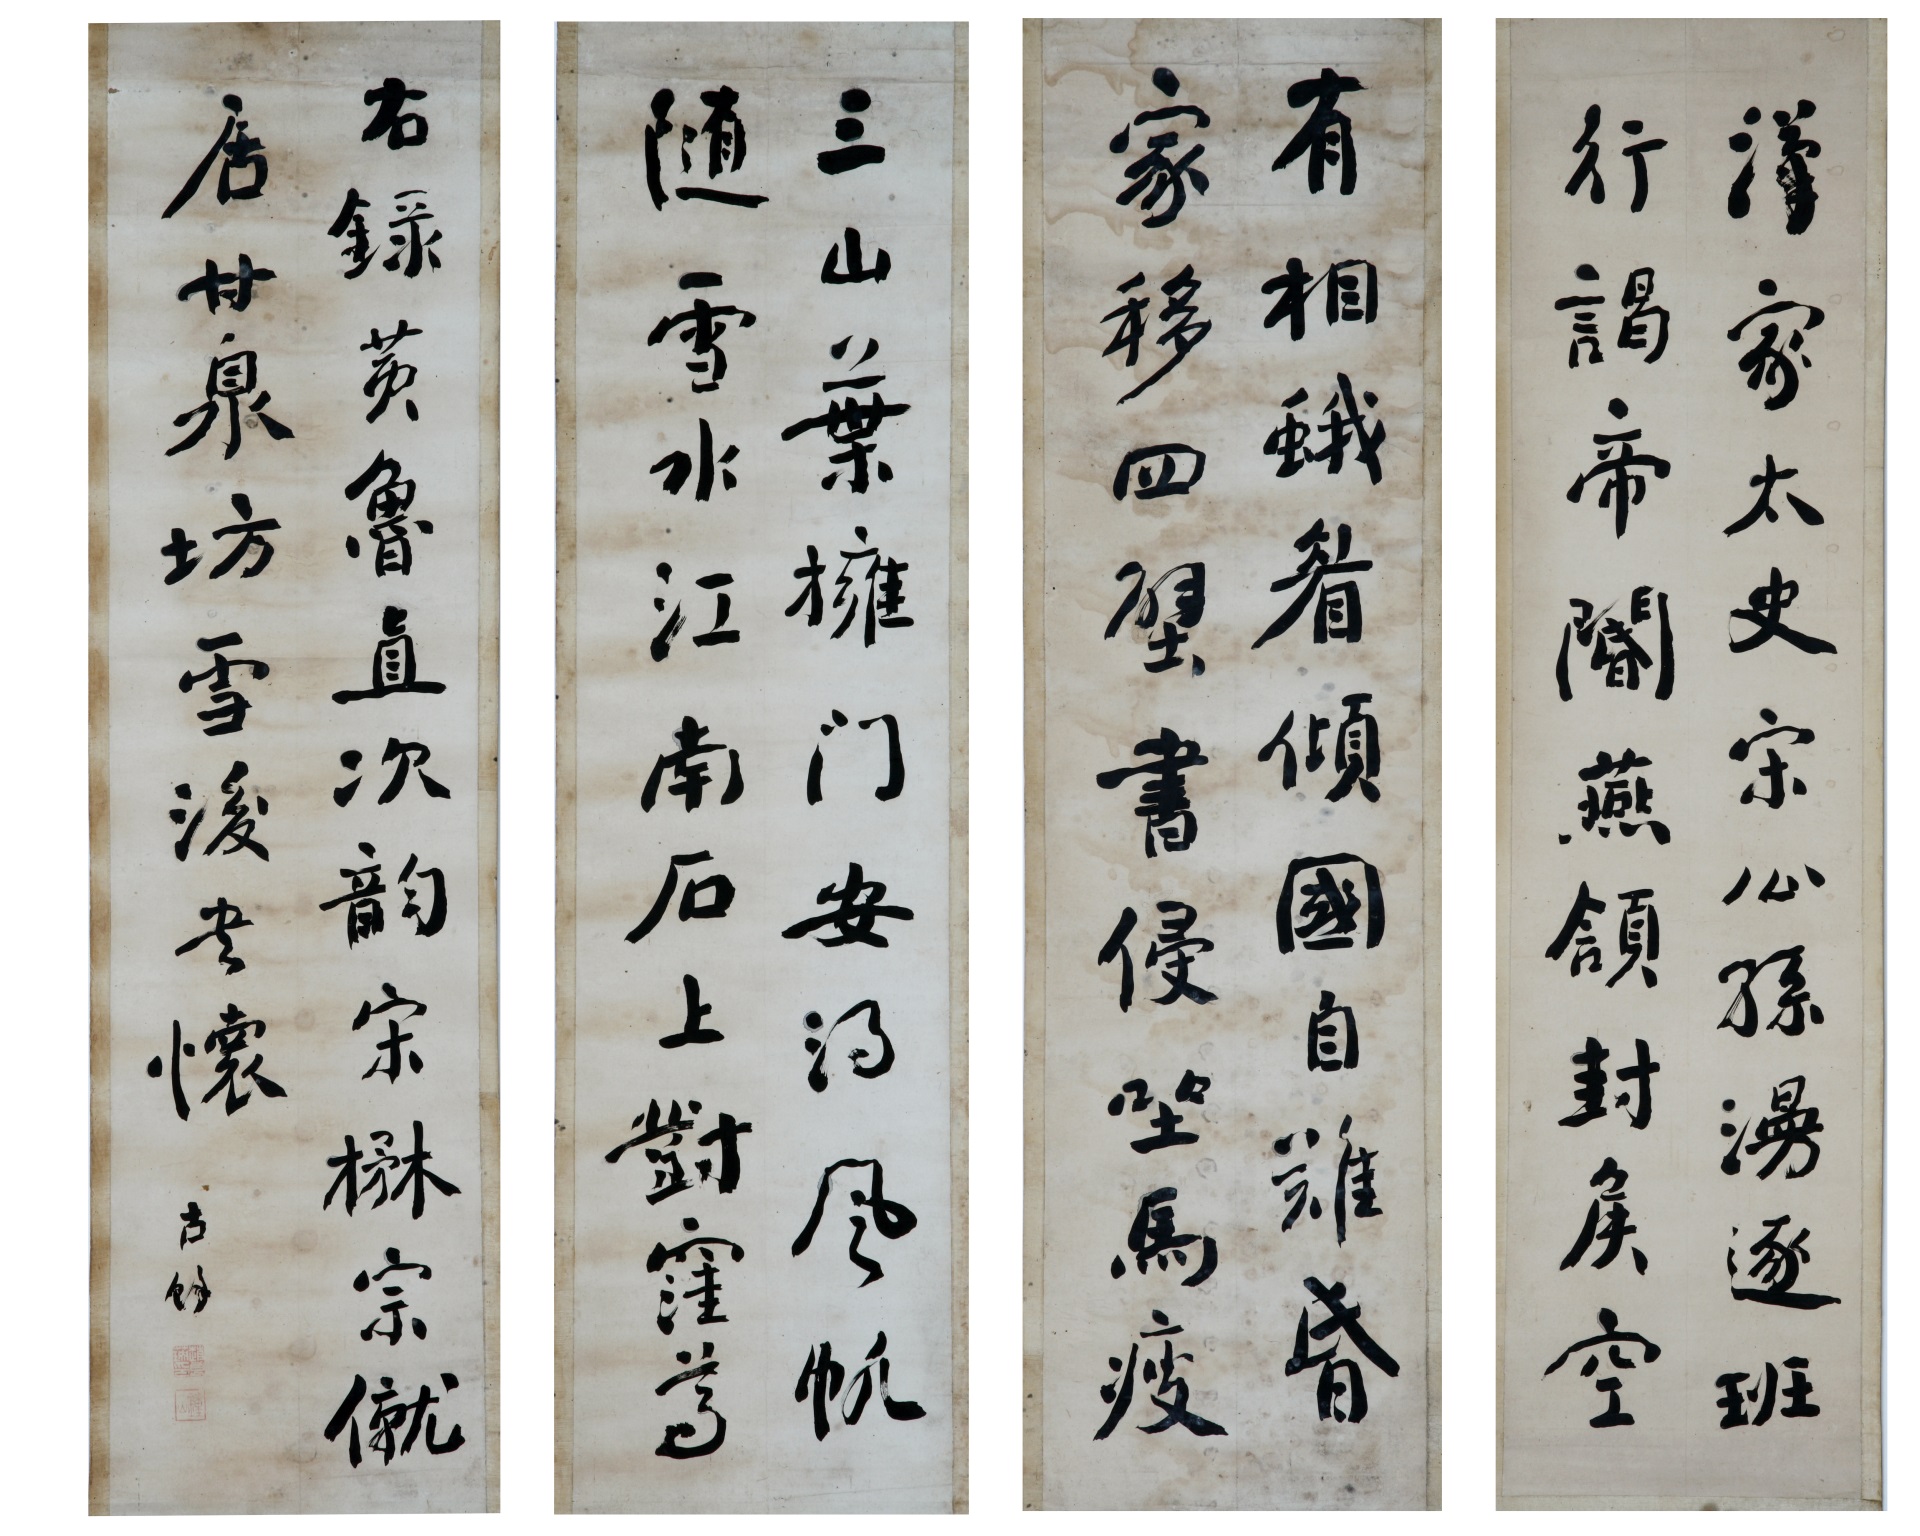 漢家太史宋公孫漫逐班
行謁帝閽燕頷封矦空
有相蛾眉傾國自難昬
家移四壁書侵坐馬瘦
三山葉擁门安得风帆
隨雪水江南石上對窪尊
右錄黃魯直次韻宋楙宗僦
居甘泉坊雪後书懷
古餘